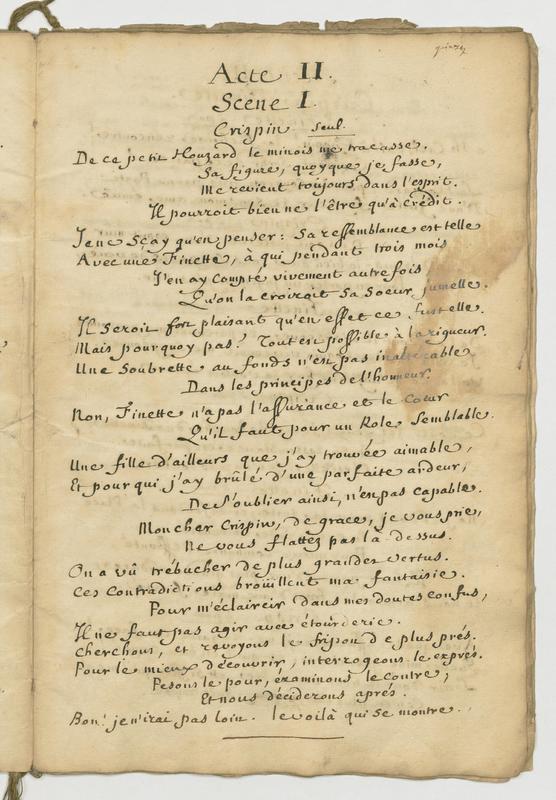 Acte II.
Scene I.
Crispin seul.
De ce petit Houzard le minois me tracasse.
Sa figure, quoyque je fasse,
me revient toujours dans l'esprit.
Il pourroit bien ne l'être qu'à crédit.
Je ne sçay qu'en penser: sa ressemblance est telle
Avec une Finette, à qui pendant trois mois
J'en ay compté vivement autrefois,
Qu'on la croiroit sa soeur jumelle.
Il seroit fort plaisant qu'en effet ce fust elle.
Mais pourquoy pas? Tout est possible à la rigueur.
Une soubrette au fonds n'est pas inalterable
Dans les principes de l'honneur.
Non, Finette n'a pas l'assurance et le coeur
Qu'il faut pour un Role semblable.
Une fille d'ailleurs que j'ay trouvée aimable,
Et pour qui j'ay brûlé d'une parfaite ardeur,
De s'oublier ainsi, n'est pas capable.
Mon cher Crispin, de grace, je vous prie,
Ne vous flattez pas là dessus.
On a vû trébucher de plus grandes vertus.
Ces contradictions broüillent ma fantaisie.
Pour m'éclaircir dans mes doutes confus,
Il ne faut pas agir avec étourderie.
Cherchons, et revoyons le fripon de plus prés.
Pour le mieux découvrir, interrogeons le exprés.
Pesons le pour, éxaminons le contre,
Et nous déciderons aprés.
Bon! je n'irai pas loin. le voilà qui se montre.